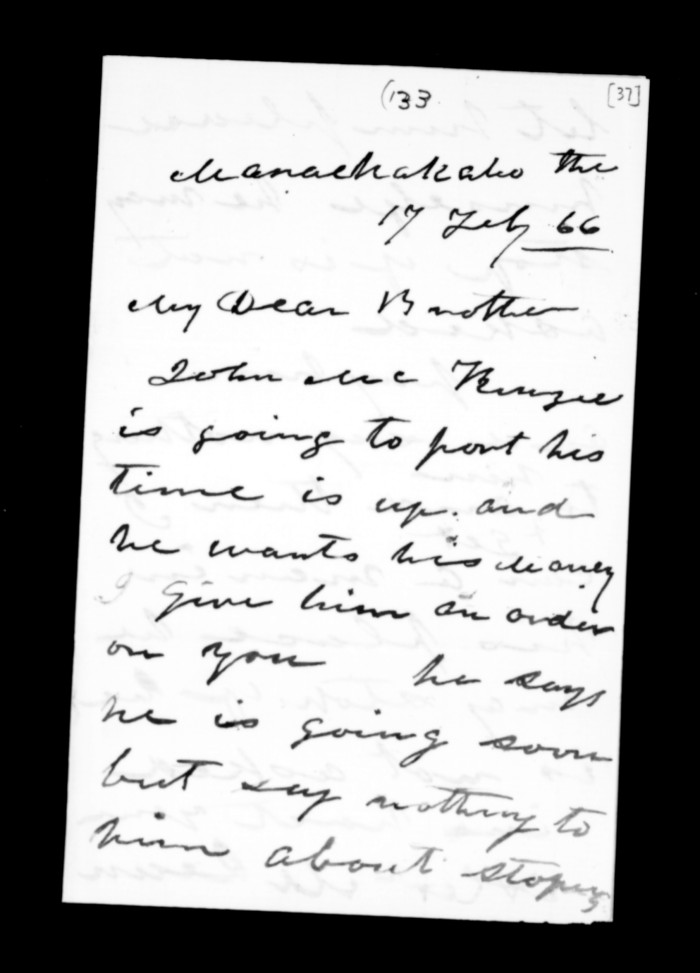 (133
[37]
Manaehakaho the
17 Feby 66
My Dear Brother
John Mc Kenzie
is going to port his
time is up. and
he wants his Money
I give him an order
on you he says
he is going soon
but say nothing to
him about stoping